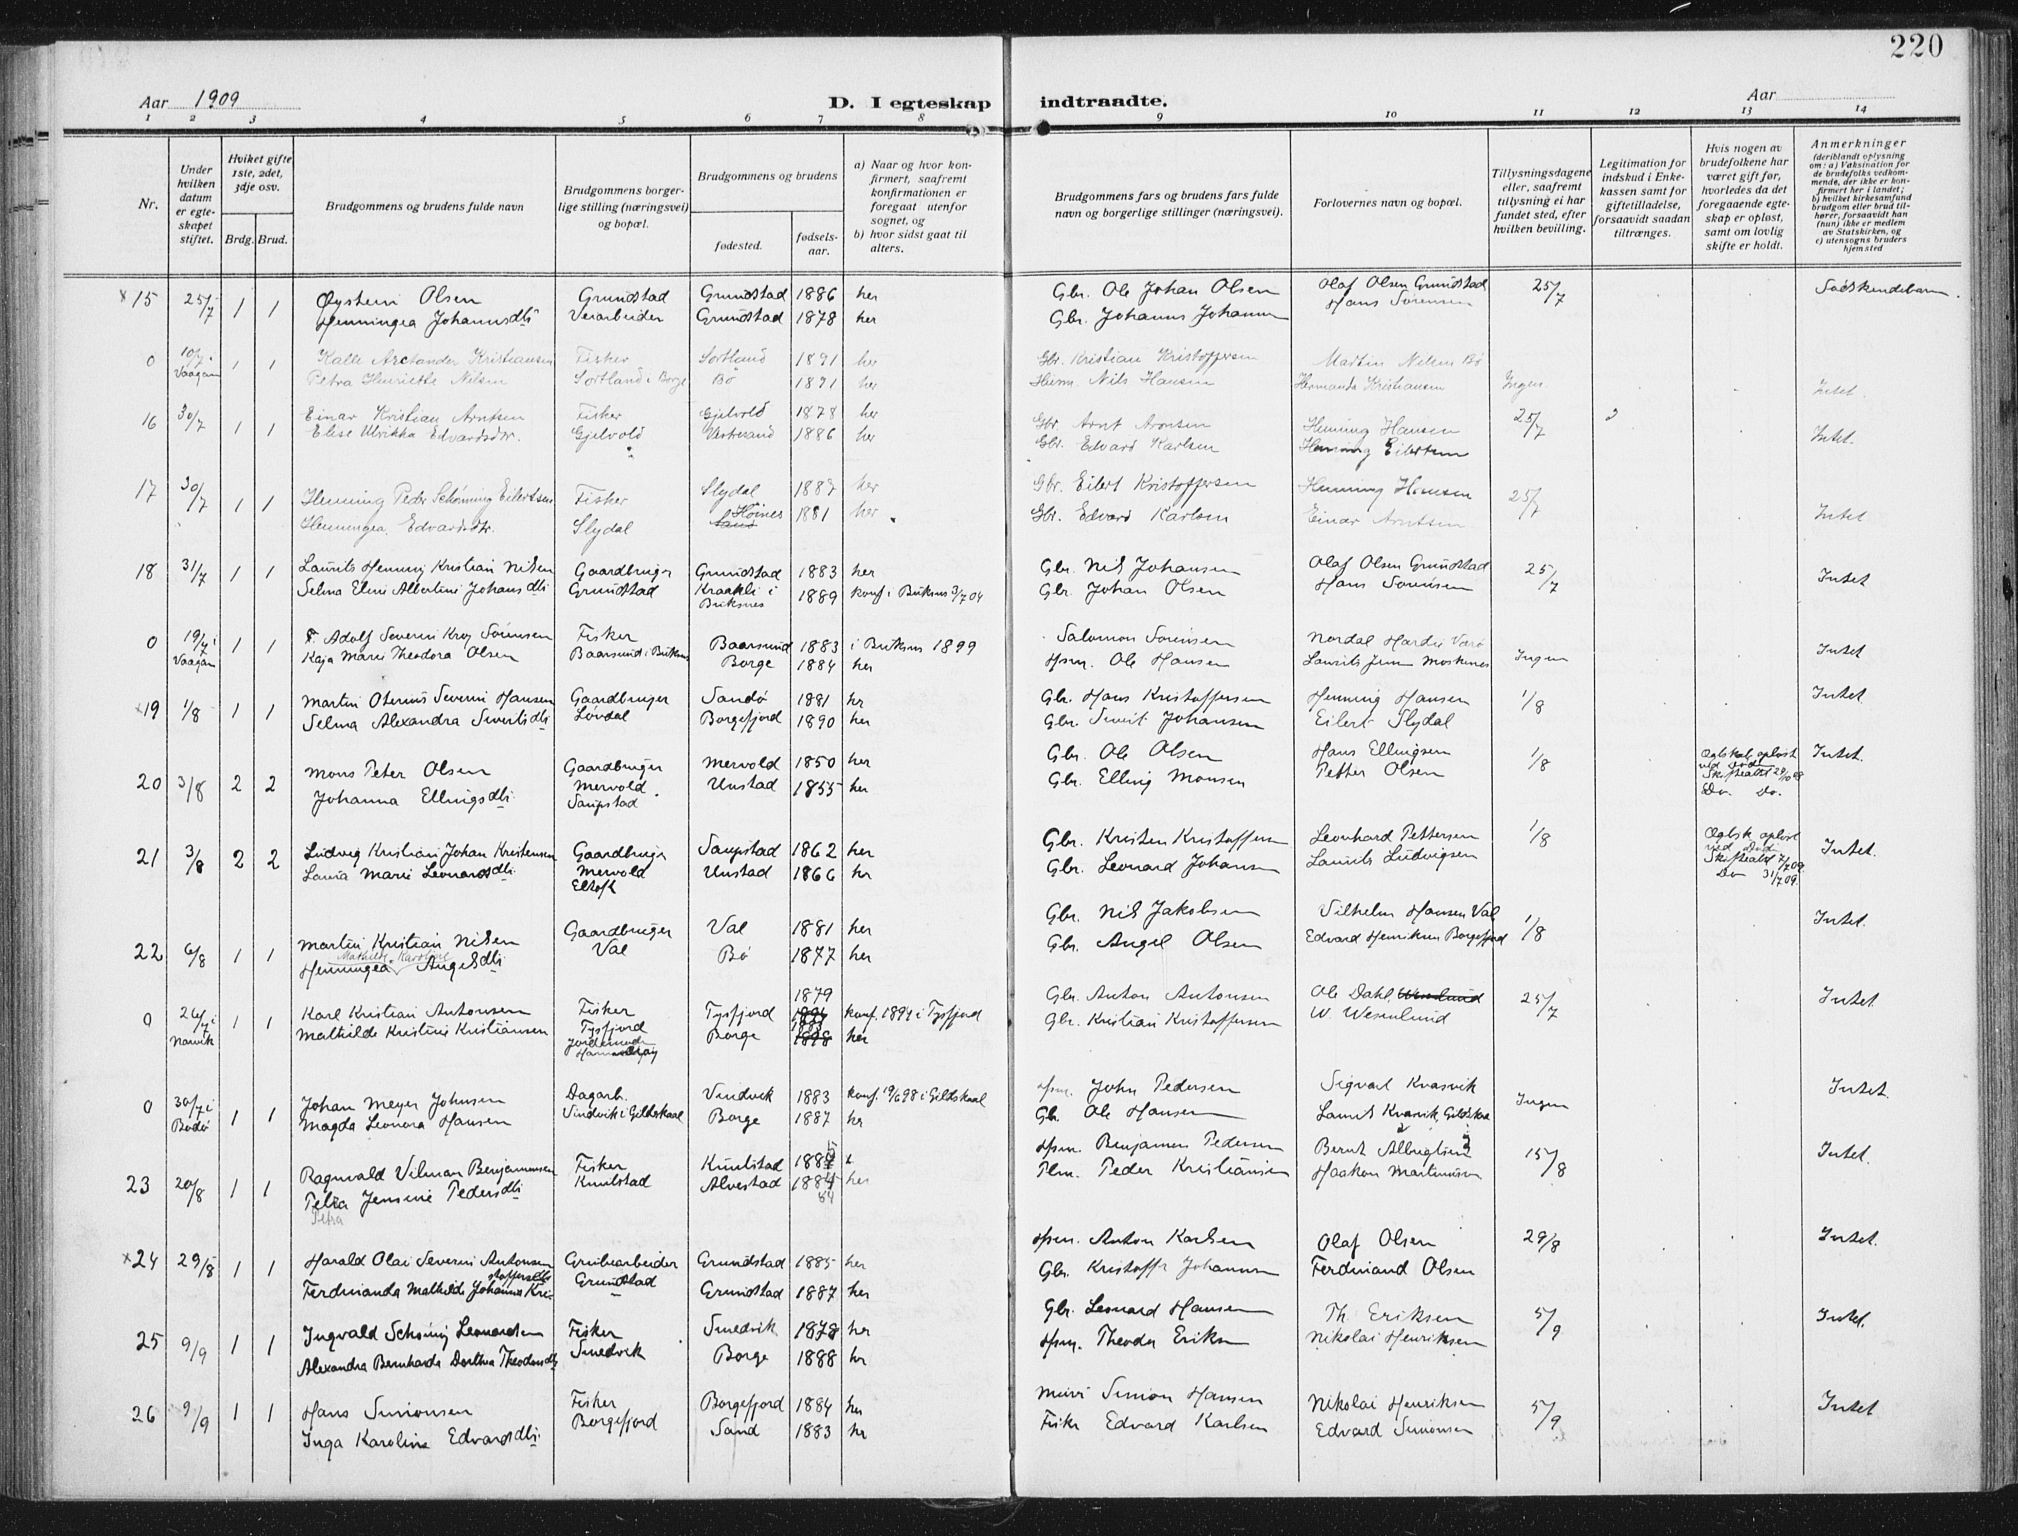 220
Aar 1909
D. I egteskap indtraadte.
Aar
1 2 3 4 5 6 7 8 9 10 11 12 13 14
Nr.
Under hvilken datum er egteskapet stiftet.
Hviket gifte 1ste, 2det, 3dje osv.
Brdg. Brud.
Brudgommens og brudens fulde navn
Brudgommens borgerlige stilling (næringsvei) og bopæl.
Brudgommens og brudens
fødested.
fødselsaar.
a) Naar og hvor konfirmert, saafremt konfirmationen er foregaat utenfor sognet, og
b) hvor sidst gaat til alters.
Brudgommens fars og brudens fars fulde navn og borgerlige stillinger (næringsvei).
Forlovernes navn og bopæl.
Tillysningsdagene eller, saafremt tillysning ei har fundet sted, efter hvilken bevilling.
Legitimation for indskud i Enkekassen samt for giftetilladelse, forsaavidt saadan tiltrænges.
Hvis nogen av brudefolkene har været gift før, hvorledes da det foregaaende egteskap er opløst, samt om lovlig skifte er holdt.
Anmerkninger
(deriblandt oplysning om: a) Vaksination for de brudefolks vedkommende, der ikke er konfirmert her i landet; b) hvilket kirkesamfund brudgom eller brud tilhører, forsaavidt han (hun) ikke er medlem av Statskirken, og c) utensogns bruders hjemsted
x 15 25/7 1 1 Øystein Olsen Grundstad Grundstad 1886 her Gbr. Ole Johan Olsen Olaf Olsen Grundstad 25/7 Sødskendebarn
Henningea Johannsdtr Grundstad 1878 her Gbr. Johanns Johannsen Hans Sørensen
0 10/7 Vaagan 1 1 Kalle Arctander Kristiansen Fisker Sortland 1891 her Gbr. Kristian Kristoffersen Martin Nilsen Bø
Petra Henriette Nilsen Sortland i Borge Bø 1891 her Husm. Nils Hansen Kristiansen Ingen Intet.
16 30/7 1 1 Einar Kristian Arntsen Fisker Gjelvold 1878 her Gbr. Arnt Arntsen Henning Hansen 25/7
Elise Ulrikka Edvardsdtr. Gjelvold 1886 her Gbr. Edvard Karlsen Henning Eilertsen Intet.
17 30/7 1 1 Henning Peder Schøning Eilertsen Fisker Slydal 1887 her Gbr. Eilert Kristoffersen Henning Hansen 25/7
Henningea Edvardsdtr. Slydal Sand Høines 1881 her Gbr. Edvard Karlsen Einar Arntsen Intet
18 31/7 1 1 Laurits Henning Kristian Nilsen Gaardbruger Grundstad 1883 her Gbr. Nils Johansen Olaf Olsen Grundstad 25/7 Intet
Selma Eline Albertine Johansdtr Grundstad Kraakli i Buksnes 1889 konf. i Buksnes 3/7 04 Gbr. Johan Olsen Hans Sørensen
0 19/7 i Vaagan 1 1 Adolf Severin Krog Sørensen Fisker Baarsund 1883 i Buksnes 1899 Salomon Sørensen Nordal Værø Intet
Kaja Marie Theodora Olsen Baarsund i Buksnes Borge 1884 her Hsm. Ole Hansen Laurits Moskenes Ingen
x 19 1/8 1 1 Martin Severin Hansen Gaardbruger Sandø 1881 her Gbr. Hans Kristoffersen Henning Hansen 1/8 Intet
Selma Alexandra Sivertsdtr Løvdal Borgefjord 1890 her Gbr. Sivert Johansen Eilert Slydal
20 3/8 2 2 Mons Peter Olsen Gaardbruger Mervold 1850 her Gbr. Ole Olsen Hans Ellingsen 1/8 Egtsk. opløst ved Død Intet.
Johanna Ellingsdtr. Mervold Saupstad Unstad 1855 her Gbr. Elling Monsen Petter Olsen Do. Do.
21 3/8 2 2 Ludvig Kristian Johan Kristensen Gaardbruger Saupstad 1862 her Gbr. Kristen Kristoffersen Leonhard Pettersen 1/8 Egtsk. opløst ved Død Skifteattest 7/7 09 Intet.
Laura Marie Leonardsdtr. Mervold Eltoft Unstad 1866 her Gbr. Leonard Johansen Laurits Ludvigsen Do 31/7 09.
22 6/8 1 1 Martin Kristian Nilsen Gaardbruger Val 1881 her Gbr. Nils Jakobsen Vilhelm Hansen Val 1/8 Intet.
Henningea Mathilde Karoline Angelsdtr. Val Bø 1877 her Gbr. Angel Olsen Edvard Henriksen Borgefjord
0 26/7 i Narvik 1 1 Karl Kristian Antonsen Fisker Tysfjord 1879 konf. 1894 i Tysfjord Gbr. Anton Antonsen Ole Dahl 25/7 Intet
Mathilde Kristine Kristiansen Tysfjord Borge 1883 1898 her Gbr. Kristian Kristoffersen W. Westlund
0 30/7 i Bodø 1 1 Johan Meyer Johnsen Dagarb. Sundvik 1883 konf. 19/6 98 i Gildskaal Hsm. John Pedersen Sigvart Kvasvik Ingen Intet.
Magda Leonora Hansen Sundvik i Gildskaal Borge 1887 her Gbr. Ole Hansen Laurits Kvasvik, Gildskaal
23 20/8 1 1 Ragnvald Vilmar Benjaminsen Fisker Knutstad 1885 Hsm. Benjamin Pedersen Bernt Albrigtsen 15/8 Intet.
Petra Jensine Pedersdtr Knutstad Alvestad 1884 her Plm. Peder Kristiansen Haakon Martinussen
Petra 84
x 24 29/8 1 1 Harald Olai Severin Antonsen Grubearbeider Grundstad 1885 her Hsm. Anton Karlsen Olaf Olsen 29/8 Intet.
Ferdinanda Mathilde Johanna Kristoffersdtr Grundstad Grundstad 1887 her Gbr. Kristoffer Johannsen Ferdinand Olsen
25 9/9 1 1 Ingvald Schøning Leonardsen Fisker Smedvik 1878 her Gbr. Leonard Hansen Th. Eriksen 5/9 Intet.
Alexandra Bernharda Dorthea Theodorsdtr Smedvik Borge 1888 her Hsm. Theodor Eriksen Nikolai Henriksen
26 9/9 1 1 Hans Simonsen Fisker Borgefjord 1884 her Simon Hansen Nikolai Henriksen 5/9 Intet
Inga Karoline Edvardsdtr. Borgefjord Sand 1883 her Fisker Edvard Karlsen Edvard Simonsen